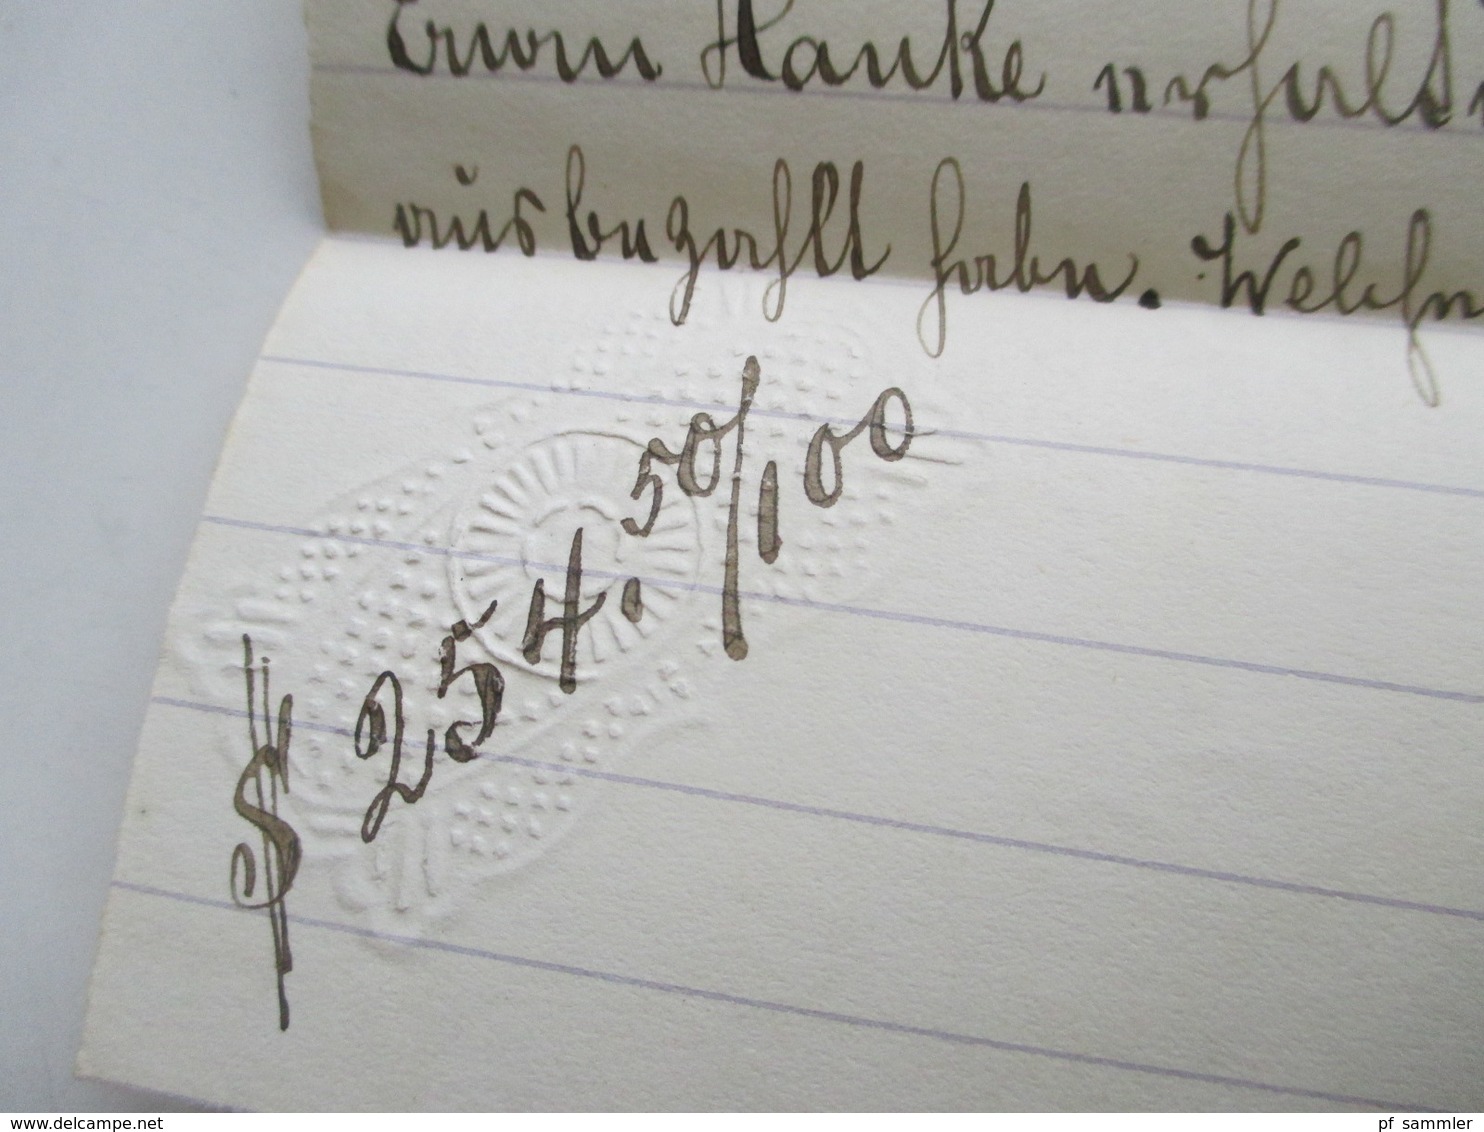 Erwin Hanke erhalt
ausbezahlt habe. Welche
$ 254.50/100
www.delcampe.net
pf_sammler